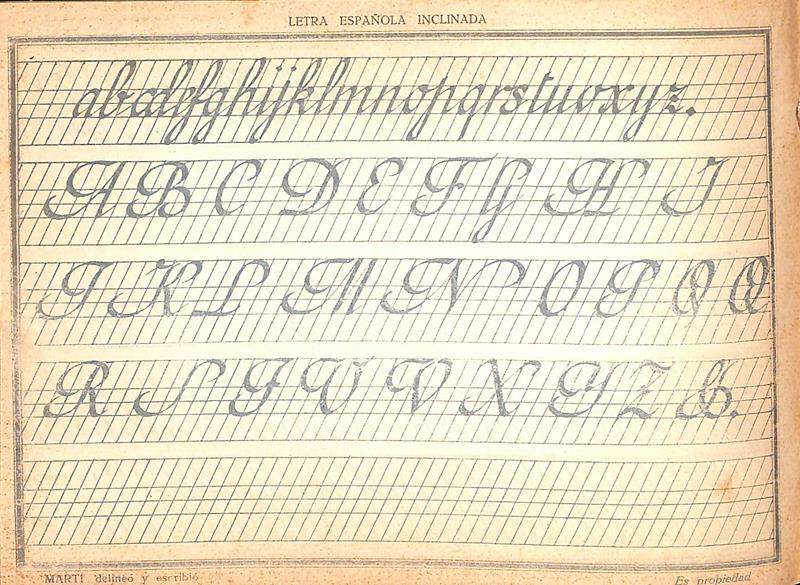 LETRA ESPAÑOLA INCLINADA
abcdefghijklmnopqrstuvxyz.
A B C D E F G H I
J K L M N O P Q Q
R S T U V X Y Z &.
MARTÍ delineó y escribió
Es propiedad